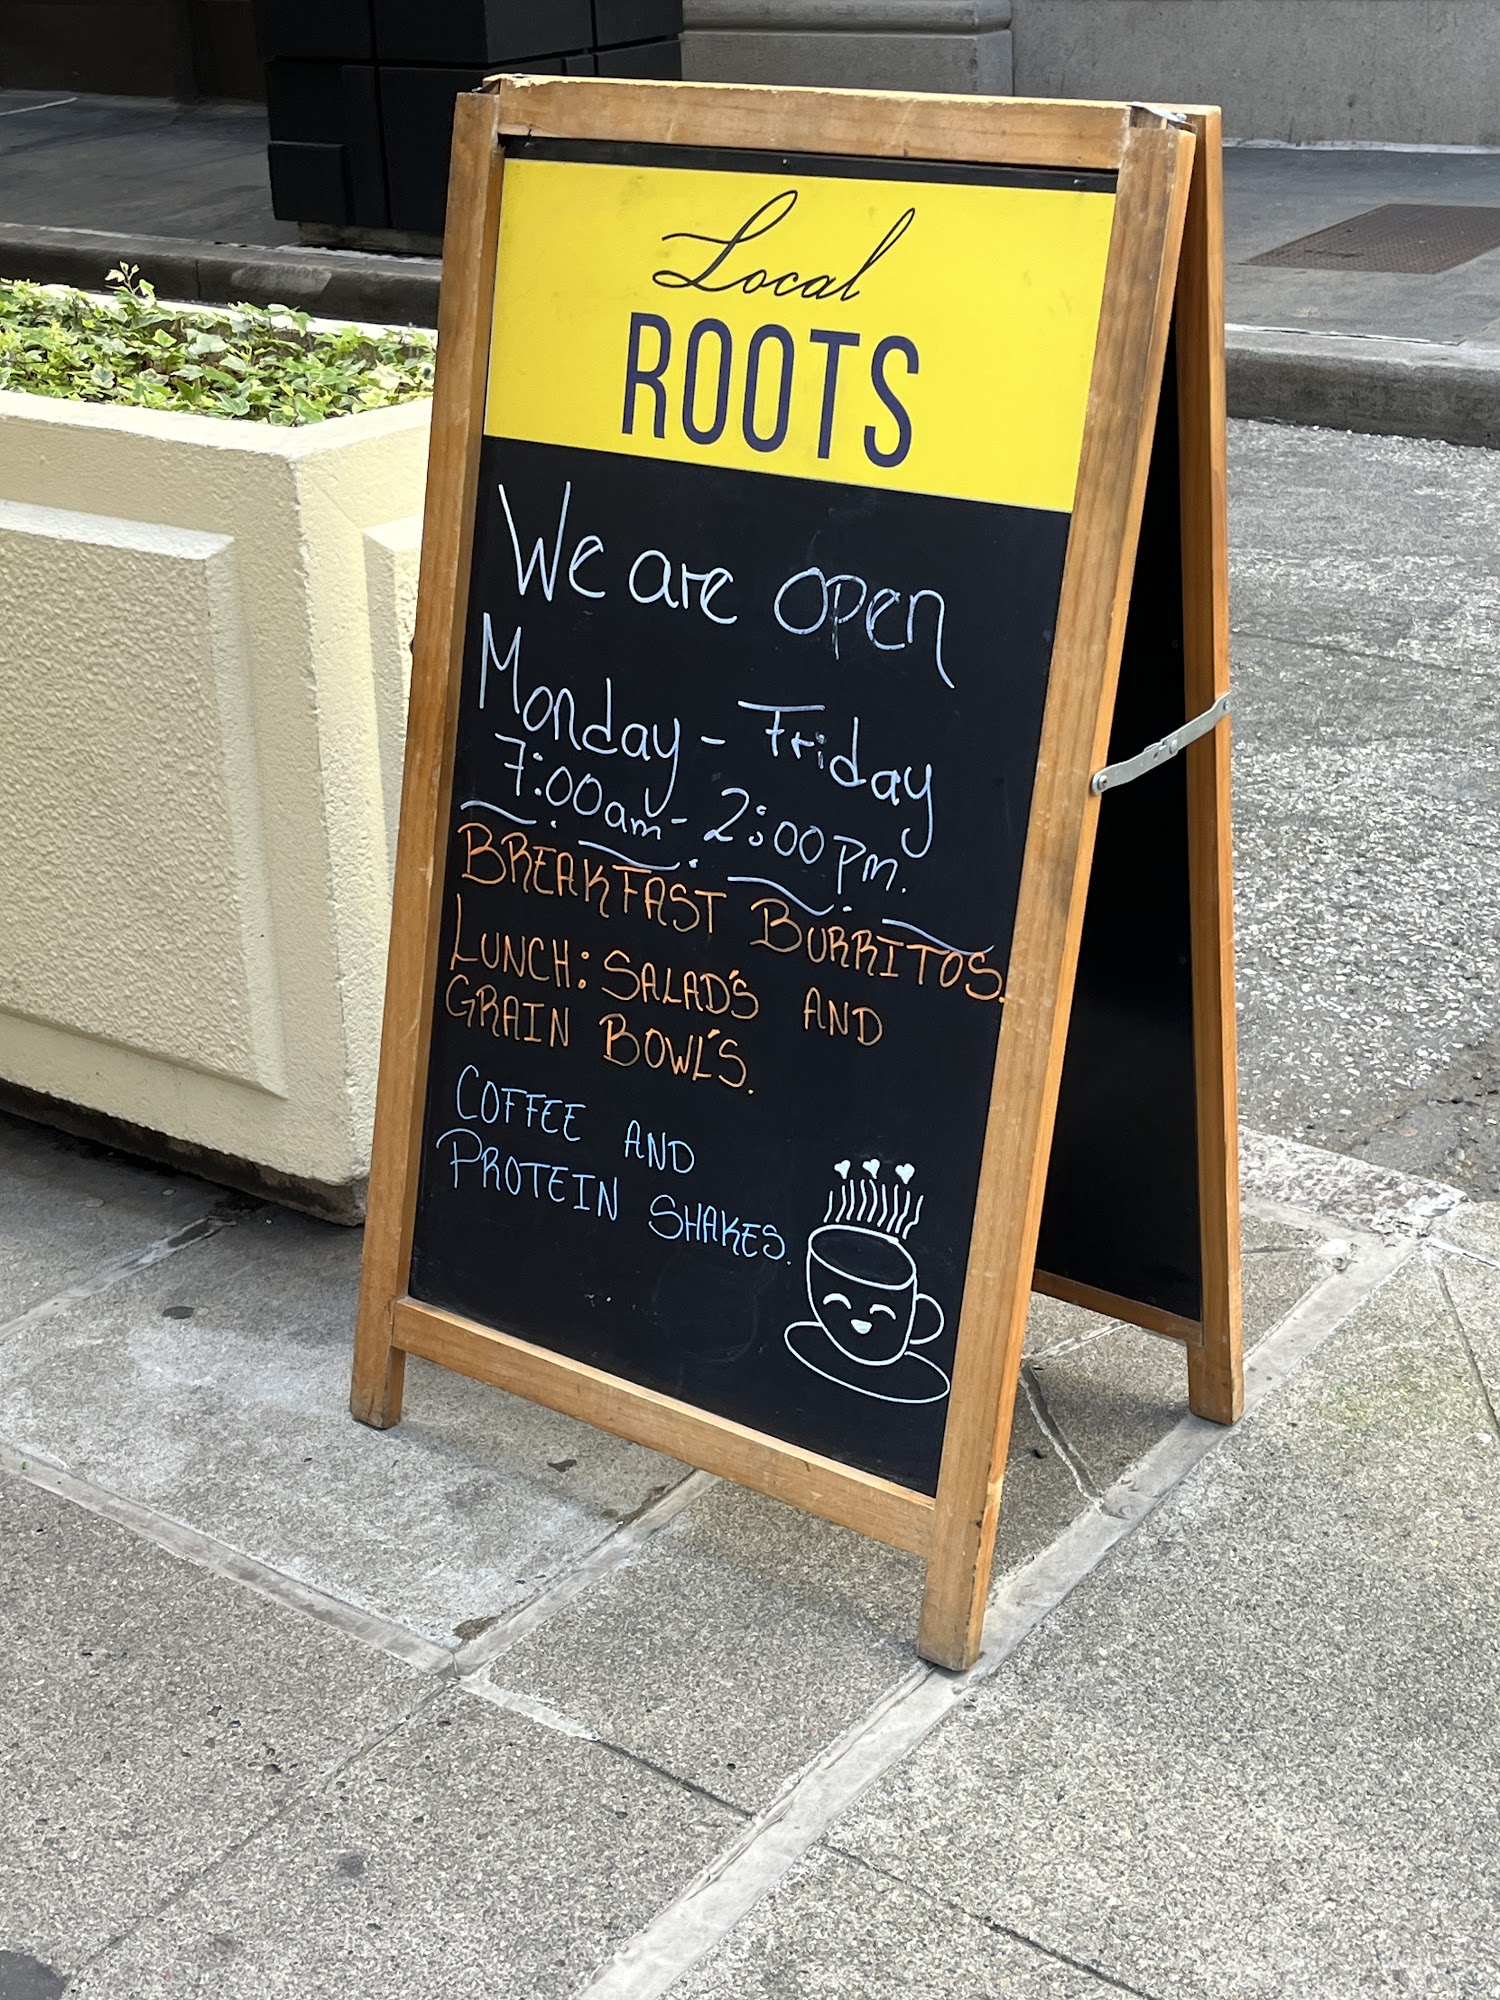 Local
ROOTS
We are open
Monday - Friday
7:00am - 2:00pm.
BREAKFAST BURRITOS.
LUNCH: SALAD'S AND
GRAIN BOWL'S.
COFFEE AND
PROTEIN SHAKES.